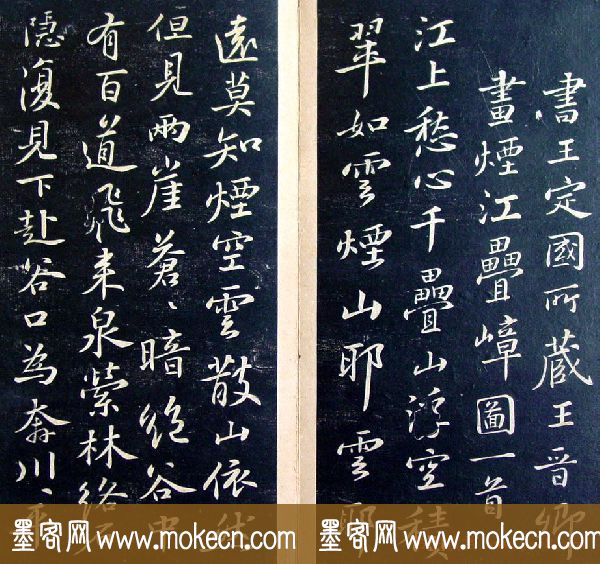 書王定國所藏王晉卿
畫煙江疊嶂圖一首
江上愁心千疊山浮空積
翠如雲煙山耶雲耶
遠莫知煙空雲散山依然
但見兩崖蒼〻暗絕谷中
有百道飛來泉縈林絡石
隱復見下赴谷口為奔川〻平
墨客网 www.mokecn.com
墨客网 www.mokecn.com